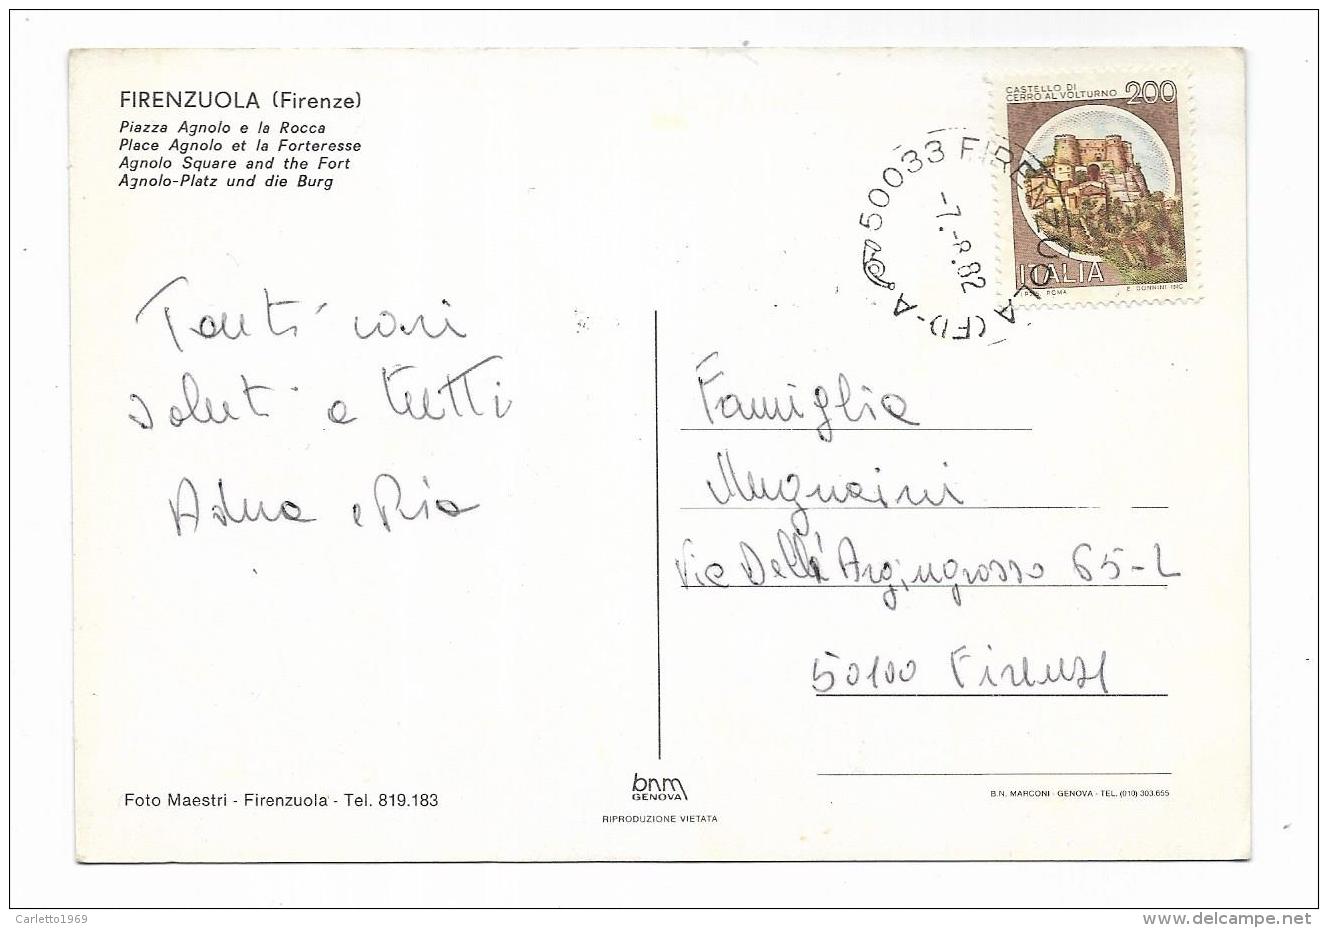 FIRENZUOLA (Firenze)
Piazza Agnolo e la Rocca
Place Agnolo et la Forteresse
Agnolo Square and the Fort
Agnolo-Platz und die Burg
CASTELLO DI
CERRO AL VOLTURNO 200
ITALIA
I.P.S. ROMA E. DONNINI INC.
50033 FIRENZUOLA (FI)-A
-7.-8.82
Tanti cari
saluti a tutti
Adua e Pia
Famiglia
Mugnaini
Via Dell'Argingrosso 65-L
50100 Firenze
Foto Maestri - Firenzuola - Tel. 819.183
bnm
GENOVA
RIPRODUZIONE VIETATA
B.N. MARCONI - GENOVA - TEL. (010) 303.655
Carletto1969
www.delcampe.net